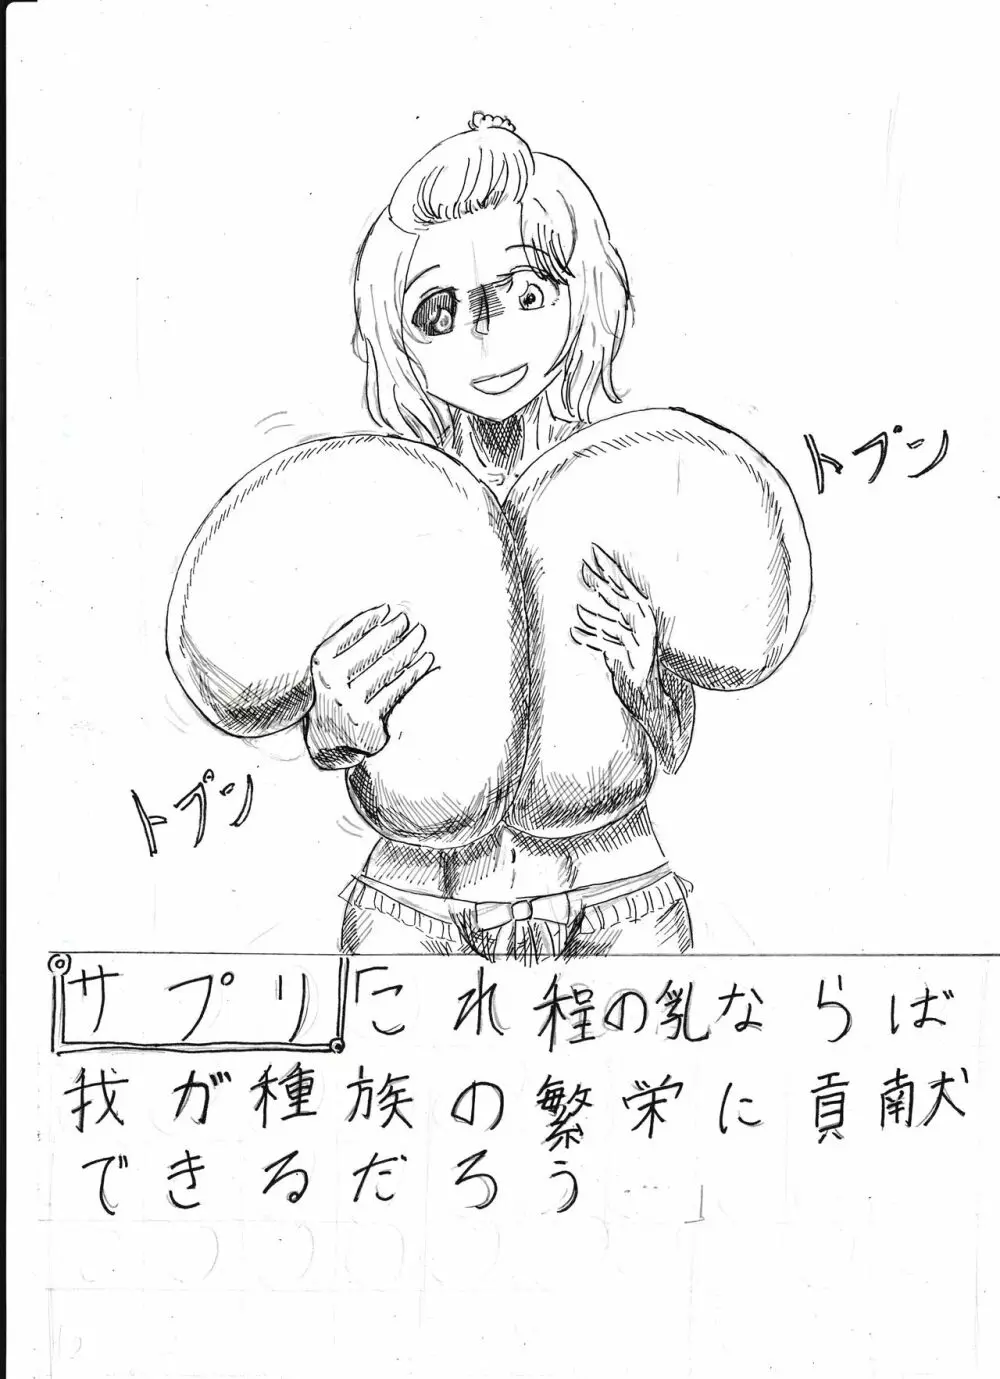 トプン
トプン
サプリ「これ程の乳ならば
我が種族の繁栄に貢献
できるだろう…」